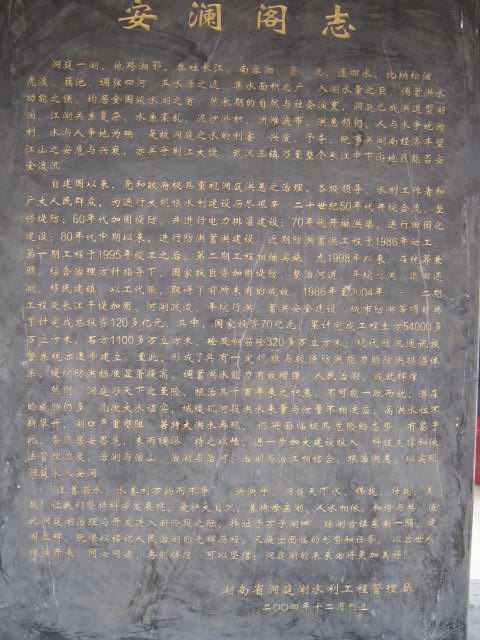 安澜阁志
洞庭一湖，地跨湘鄂，吞吐长江，南容湘、资、沅、澧四水，北纳松滋、
虎渡、藕池、调弦四河，其水源之远，集水面积之广，入湖水量之巨，调蓄洪水
功能之强，均居全国淡水湖之首。然长期的自然与社会演变，洞庭已成洪道型湖
泊，江湖关系复杂，水系紊乱，泥沙淤积，洲滩遍布，洪患频仍，人与水争地为
利，水与人争地为殃。是故洞庭之水的利害、兴废、予夺，既事关湖南经济丰歉
江山之安危与兴衰，亦关乎荆江大堤、武汉三镇乃至整个长江中下游地区能否安
全度汛。
自建国以来，党和政府极其重视洞庭洪患之治理，各级领导、水利工作者和
广大人民群众，为进行大规模水利建设历尽艰辛。二十世纪50年代并垸合流，整
修堤防；60年代加固堤防，并进行电力排灌建设；70年代开撇洪渠，进行田园化
建设；80年代中期以来，进行防洪蓄洪建设，近期防洪蓄洪工程于1986年动工，
第一期工程于1995年竣工之后，第二期工程相继实施。尤1998年以来，在统筹兼
顾、综合治理方针指导下，国家投巨资加固堤防，整治河道，平垸行洪，退田还
湖，移民建镇，以工代赈，取得了前所未有的成效。1986年至2004年，一、二期
工程及长江干堤加固、河湖疏浚、平垸行洪、蓄洪安全建设、城市防洪等项目共
累计完成总投资120多亿元，其中，国家投资70亿元，累计完成工程土方54000多
万立方米，石方1100多万立方米，砼及钢筋砼320多万立方米，现代防汛通讯预
警系统亦逐步建立。至此，形成了具有一定规模与较强防洪能力的防洪排涝体
系，堤垸防洪标准显著提高，调蓄洪水能力有效增强，人民治湖，成就辉煌。
然则，洞庭乃天下之至险，根治其千百年来之积患，不可能一蹴而就，潜在
的威胁仍多，况泼天水祸实，城陵矶河段洪水来量与泄量不相适应，高洪水位不
断攀升，湖口严重壅阻，若特大洪水再现，仍将面临极其危险的态势。有鉴于
此，务须居安思危，未雨绸缪，持之以恒，进一步加大建设投入、科技支撑和依
法管理力度，治湖与治山、治湖与治河、治湖与治江相结合，根治洪患，以实现
洞庭永久安澜。
上善若水，水善利万物而不争。洪洪乎，洞庭天下水，伟哉，壮哉，美
哉！让我们坚持科学发展观，爱护大自然，善待母亲湖，人水相依，和谐与共。值
此洞庭湖治理与开发进入新阶段之际，择址于万子湖畔、琼湖古镇东南一隅，建
阁立碑，既借以铭记人民治湖的光辉历程，又提示面临的形势和任务，以启世人
继往开来，同心同德，再创辉煌。可以坚信：洞庭湖的未来必将更加美好！
湖南省洞庭湖水利工程管理局
二〇〇四年十二月刊立